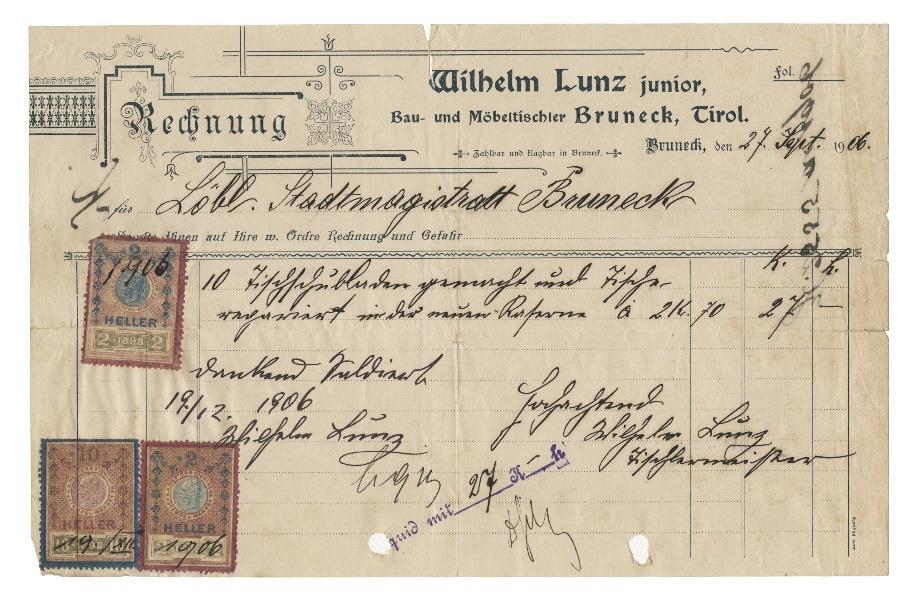 Rechnung
Wilhelm Lunz junior,
Bau- und Möbeltischler Bruneck, Tirol.
Zahlbar und klagbar in Bruneck.
Fol.
Bruneck, den 27. Sept. 1906.
für Löbl. Stadtmagistratt Bruneck
Sandte Ihnen auf Ihre w. Ordre Rechnung und Gefahr
K. h.
10 Tischschubladen gemacht und Tische
repariert in der neuen Kaserne à 2 K. 70 27 —
dankend Saldiert
19/12. 1906
Wilhelm Lunz
Hochachtend
Wilhelm Lunz
Tischlermeister
27 K — h
quid mit
2
1906
HELLER
2 1898 2
10
HELLER
1898
19/XII
2
HELLER
1906